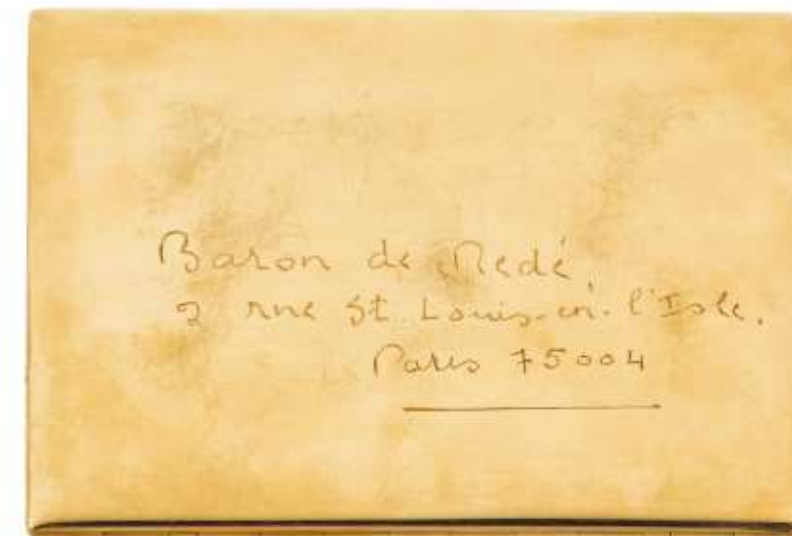 Baron de Redé
2 rue St Louis-en-l'Isle.
Paris 75004